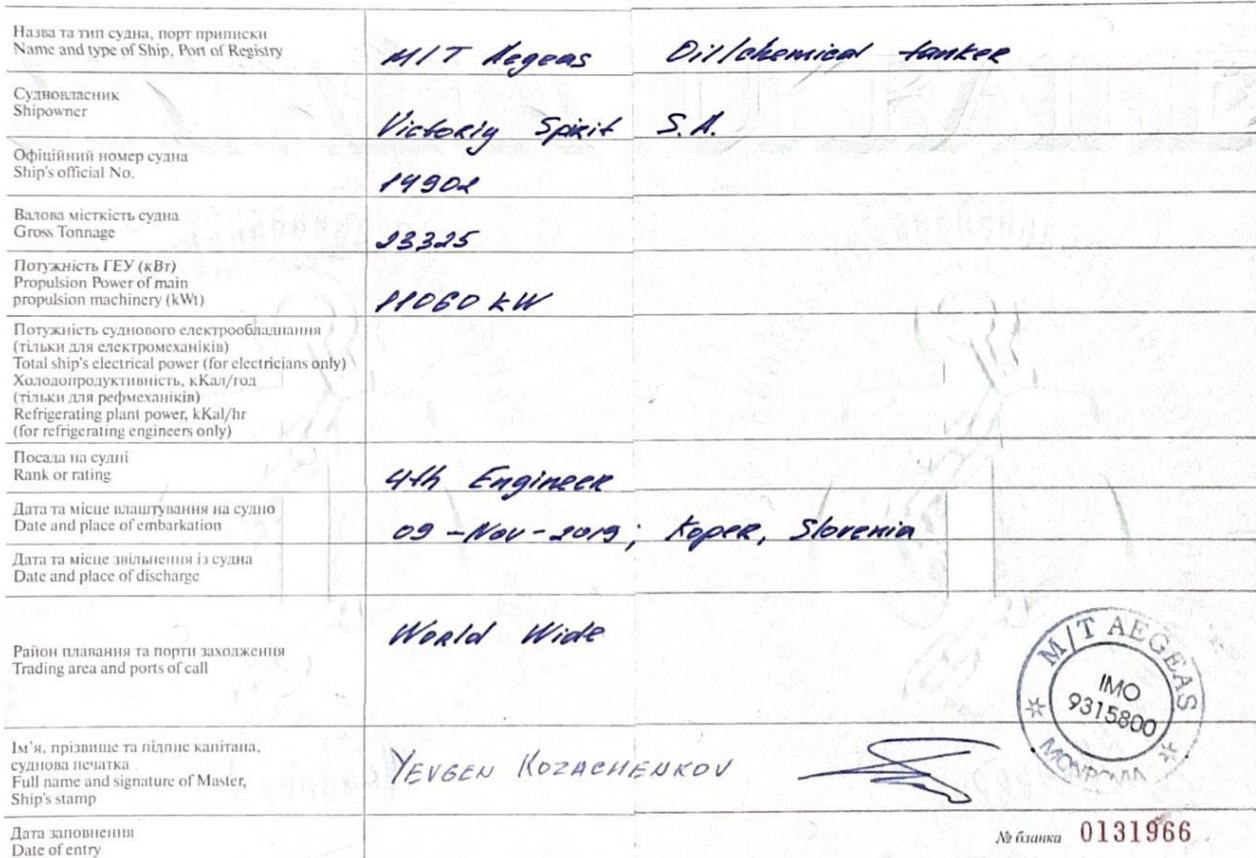 Назва та тип судна, порт приписки
Name and type of Ship, Port of Registry
M/T Aegeas Oil/chemical tanker
Судновласник
Shipowner
Victoriy Spirit S.A.
Офіційний номер судна
Ship's official No.
14902
Валова місткість судна
Gross Tonnage
23325
Потужність ГЕУ (кВт)
Propulsion Power of main
propulsion machinery (kWt)
11060 kW
Потужність суднового електрообладнання
(тільки для електромеханіків)
Total ship's electrical power (for electricians only)
Холодопродуктивність, кКал/год
(тільки для рефмеханіків)
Refrigerating plant power, kKal/hr
(for refrigerating engineers only)
Посада на судні
Rank or rating
4th Engineer
Дата та місце влаштування на судно
Date and place of embarkation
09-Nov-2019; Koper, Slovenia
Дата та місце звільнення із судна
Date and place of discharge
Район плавання та порти заходження
Trading area and ports of call
World Wide
M/T AEGEAS
IMO
9315800
Ім'я, прізвище та підпис капітана,
суднова печатка
Full name and signature of Master,
Ship's stamp
YEVGEN KOZACHENKOV
Дата заповнення
Date of entry
№ бланка 0131966